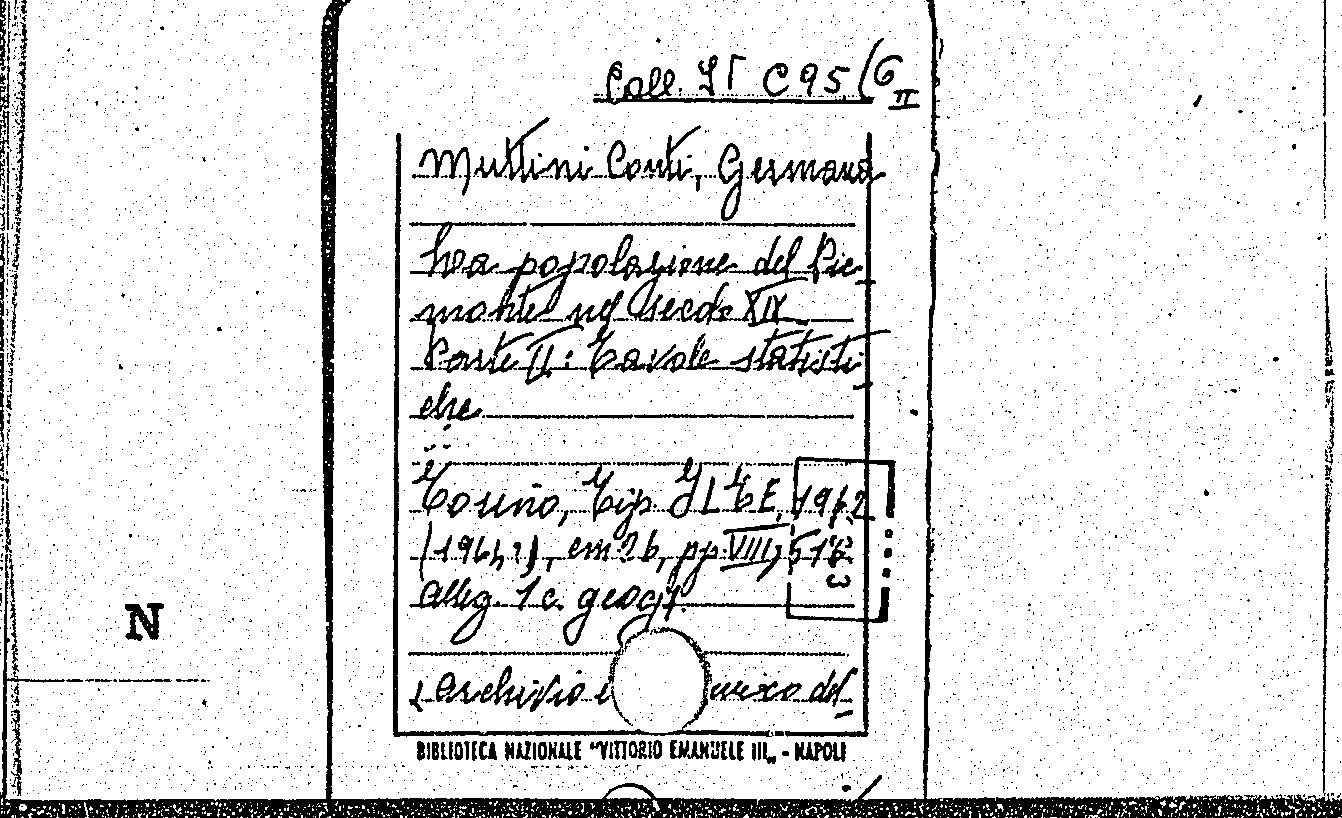 Coll. It C 95 /6
II
Muttini Conti, Germana
La popolazione del Pie-
monte nel secolo XIX
Parte II: Tavole statisti-
che.
Torino, Tip. ILTE, 1962
(1964?), cm 26, pp. VIII,
alleg. 1 c. geogr.
(Archivio del-
BIBLIOTECA NAZIONALE "VITTORIO EMANUELE III„ - NAPOLI
N